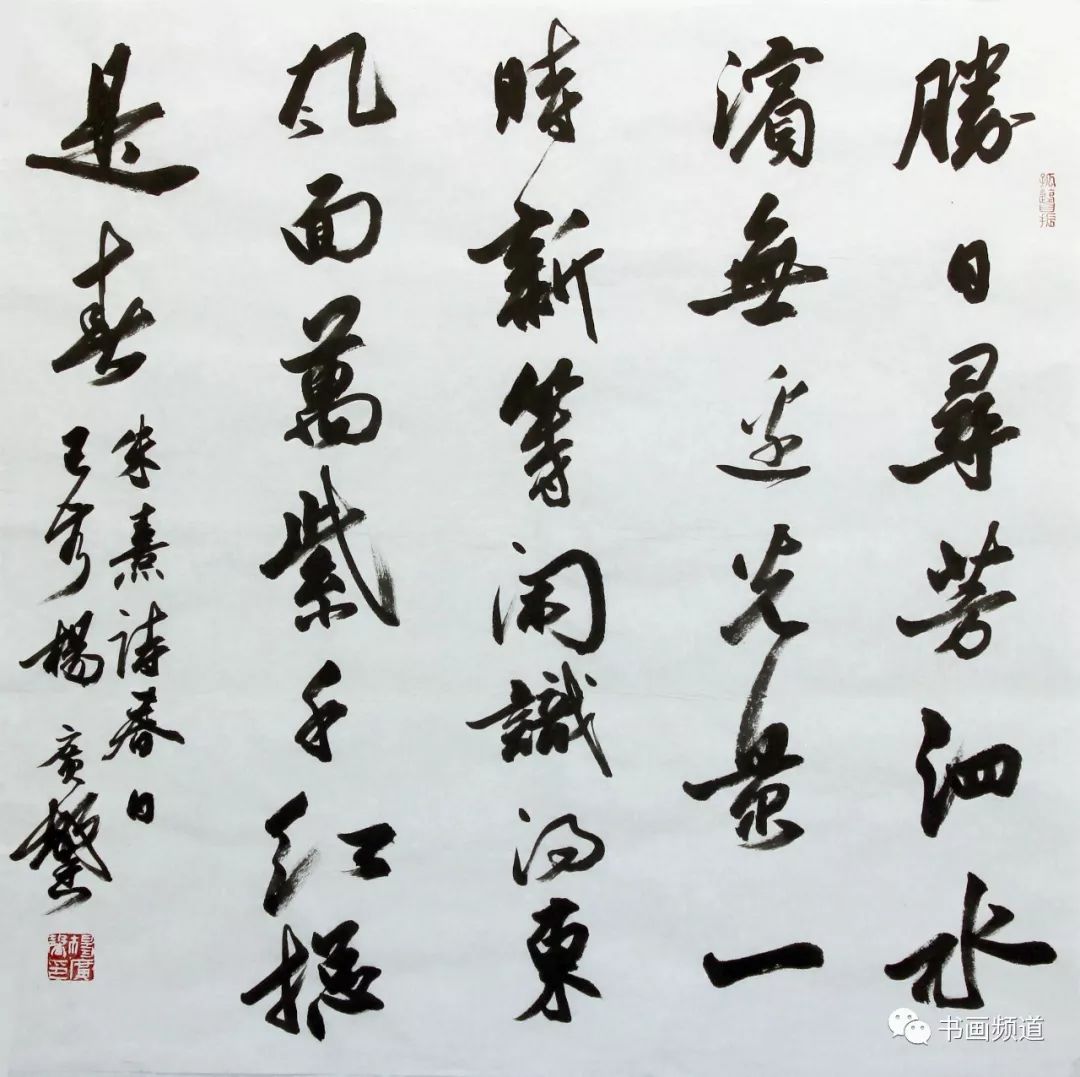 勝日尋芳泗水
濱無邊光景一
時新等閑識得東
風面萬紫千紅總
是春
朱熹詩春日
己亥楊廣馨
楊廣馨印
书画频道